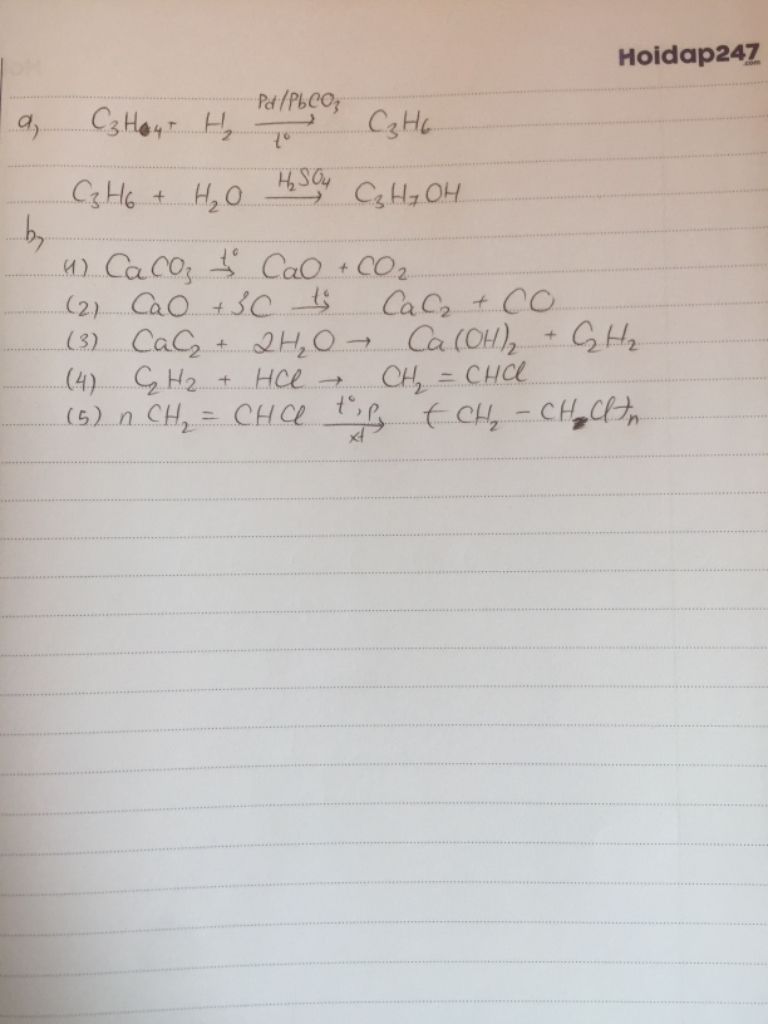 Hoidap247
.com
a, C₃H₄ + H₂ Pd/PbCO₃ → t° C₃H₆
C₃H₆ + H₂O H₂SO₄ → C₃H₇OH
b,
(1) CaCO₃ t° → CaO + CO₂
(2) CaO + 3C t° → CaC₂ + CO
(3) CaC₂ + 2H₂O → Ca(OH)₂ + C₂H₂
(4) C₂H₂ + HCl → CH₂ = CHCl
(5) n CH₂ = CHCl t°, p, → xt (CH₂ - CHCl)ₙ